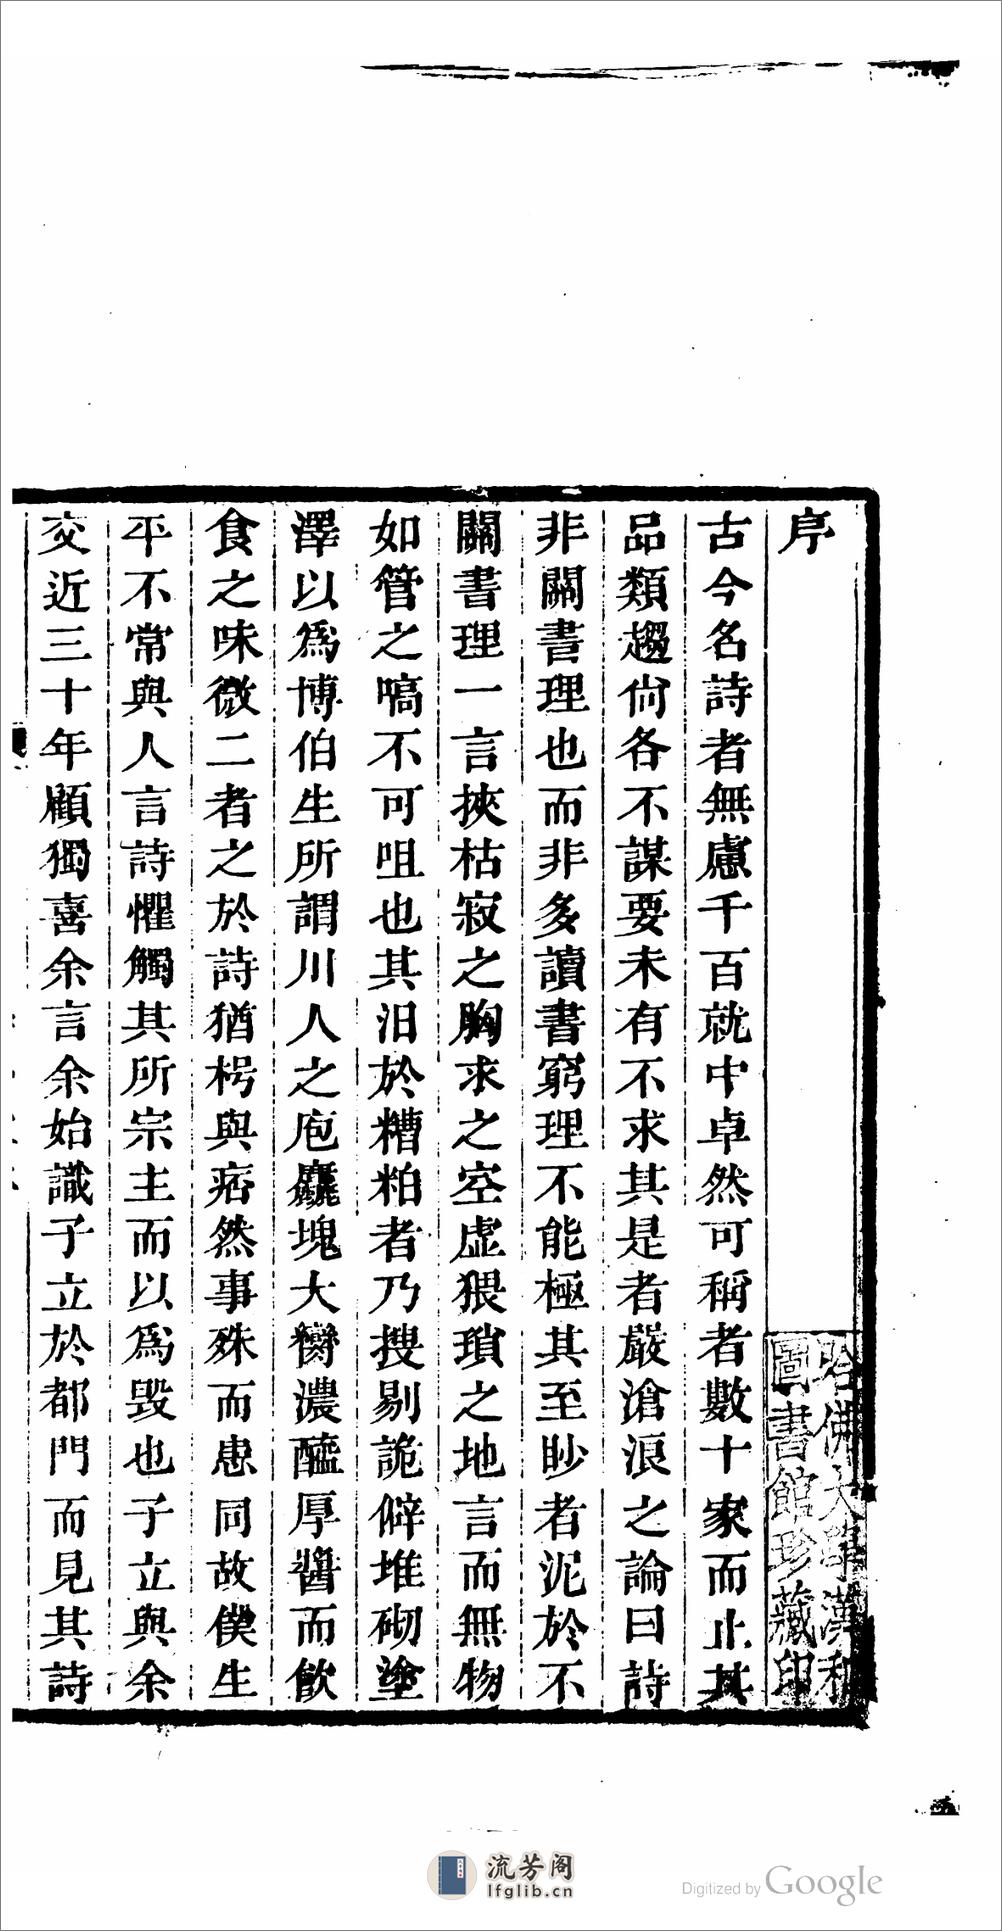 序
古今名詩者無慮千百就中卓然可稱者數十家而止其
品類趨尙各不謀要未有不求其是者嚴滄浪之論曰詩
非關書理也而非多讀書窮理不能極其至眇者泥於不
關書理一言挾枯寂之胸求之空虛猥瑣之地言而無物
如管之嗃不可咀也其汨於糟粕者乃搜剔詭僻堆砌塗
澤以爲博伯生所謂川人之庖麤塊大臠濃醯厚醬而飲
食之味微二者之於詩猶枵與痞然事殊而患同故僕生
平不常與人言詩懼觸其所宗主而以爲毀也子立與余
交近三十年顧獨喜余言余始識子立於都門而見其詩
哈佛大學漢和
圖書館珍藏印
流芳阁
lfglib.cn
Digitized by Google